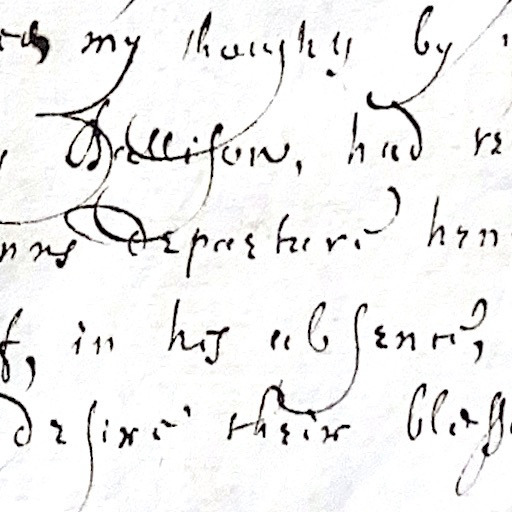 my thoughts by
Bellison, had re
departure hen
in his absence,
desire their bless